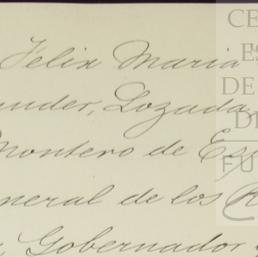 Félix María
ander, Lozada
Montero de Es
neral de los R
Gobernador
CE
ES
DE
D
FU